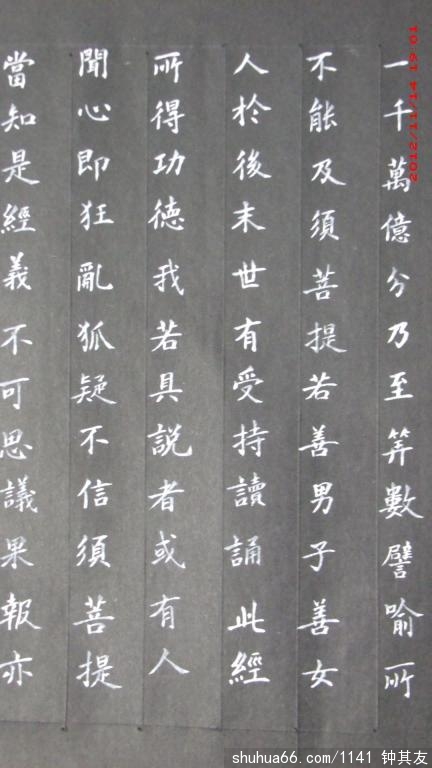 一千萬億分乃至筭數譬喻所
不能及須菩提若善男子善女
人於後末世有受持讀誦此經
所得功德我若具說者或有人
聞心即狂亂狐疑不信須菩提
當知是經義不可思議果報亦
2012/11/14 19:01
shuhua66.com/1141 钟其友